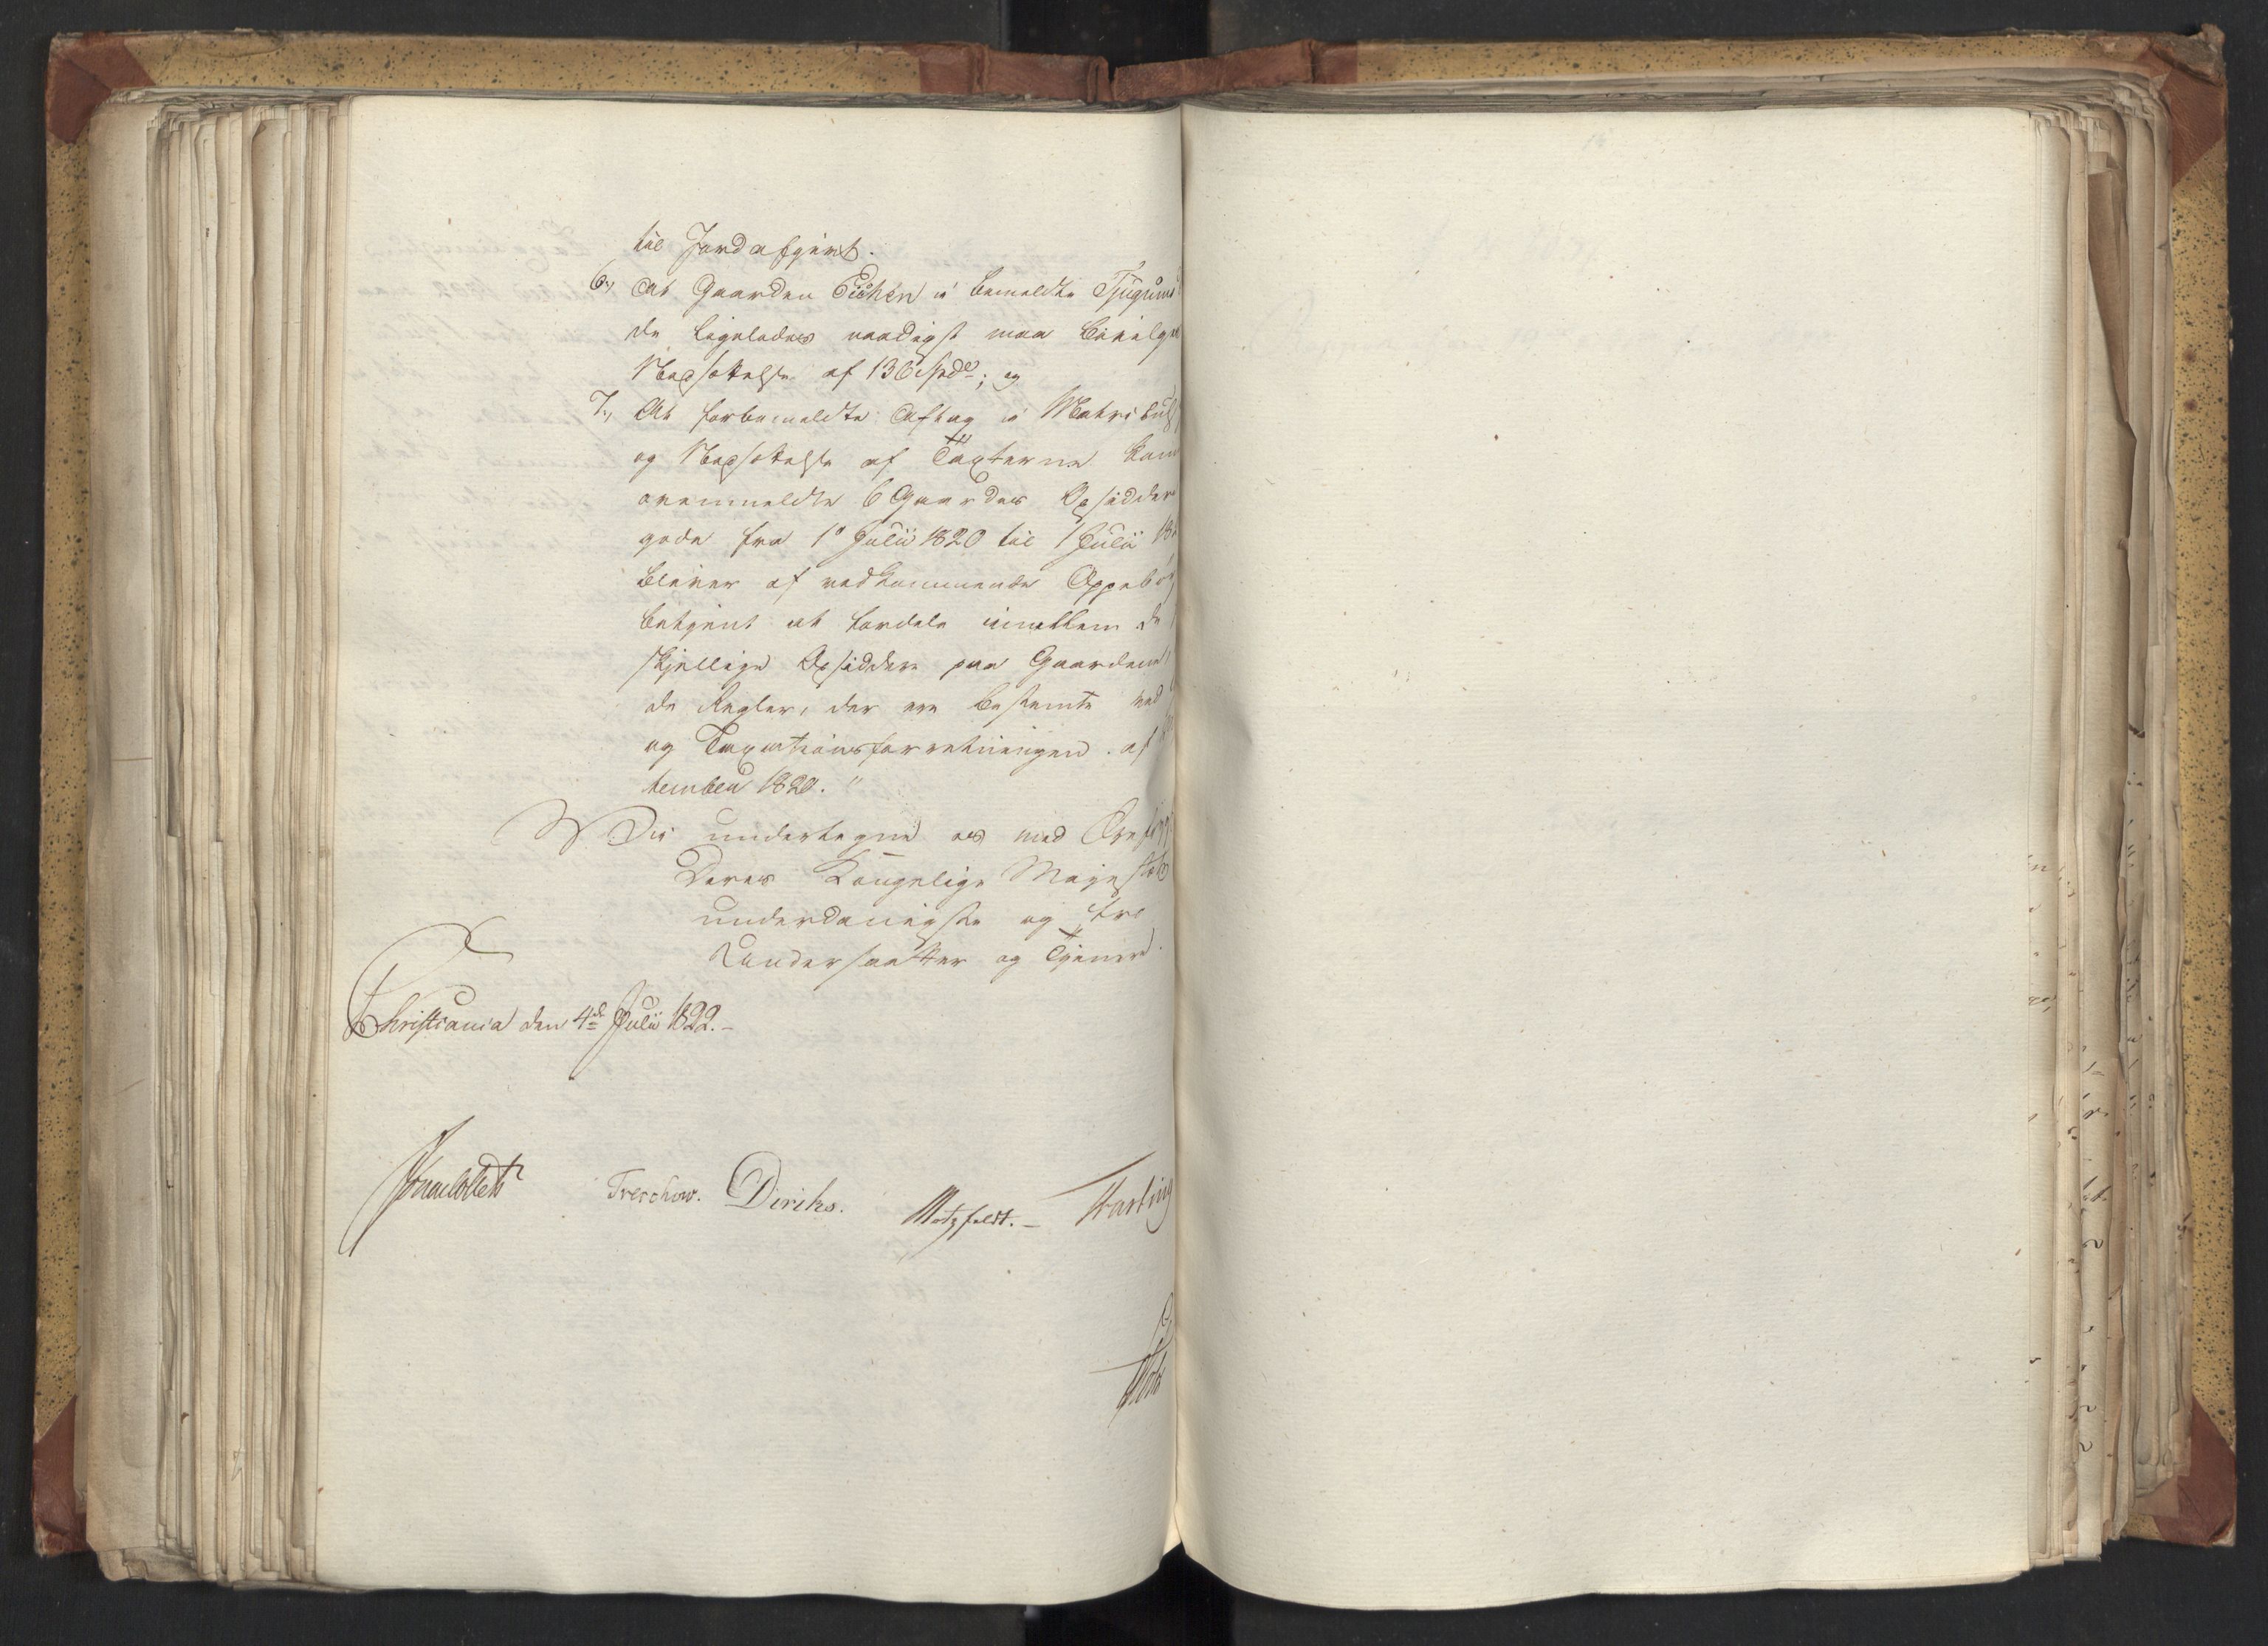 til Jordafgivt.
6, At Gaarden Eithen i bemeldte Tjugums
de ligeledes naadigst maa bevilges
Nedsættelse af 136 Spd; og
7, At forbemeldte Aftag i Matrikul
og Nedsættelse af Taxterne kom
ovenmeldte 6 Gaardes Opsiddere
gode fra 1 Julii 1820 til 1 Julii 18
bliver af vedkommende Oppebør
betjent at fordele imellem de
skjellige Opsiddere paa Gaardene
de Regler, der ere bestemte ved
og Taxationsforretningen af
tember 1820."
Vi undertegne os med Ærefrygt
Deres Kongelige Majestæts
underdanigste og tro
Undersaatter og Tjenere.
Christiania den 4de Julii 1822.-
Treschow. Diriks. Motzfeldt.- Fasting